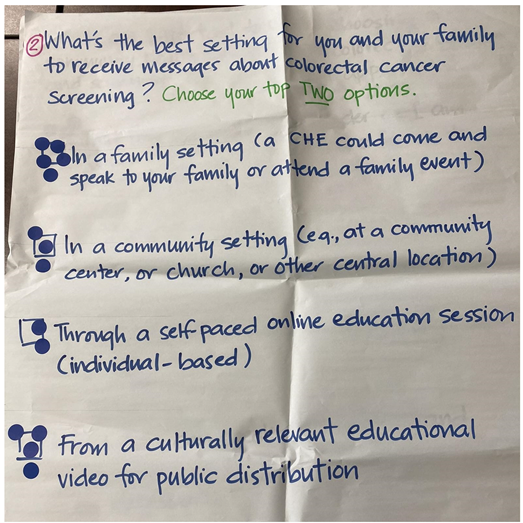 ② What's the best setting for you and your family
to receive messages about colorectal cancer
screening? Choose your top TWO options.
In a family setting (a CHE could come and
speak to your family or attend a family event)
In a community setting (eg., at a community
center, or church, or other central location)
Through a self paced online education session
(individual-based)
From a culturally relevant educational
video for public distribution